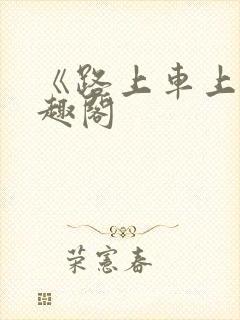 《路上車上
趣閣
荣憲春